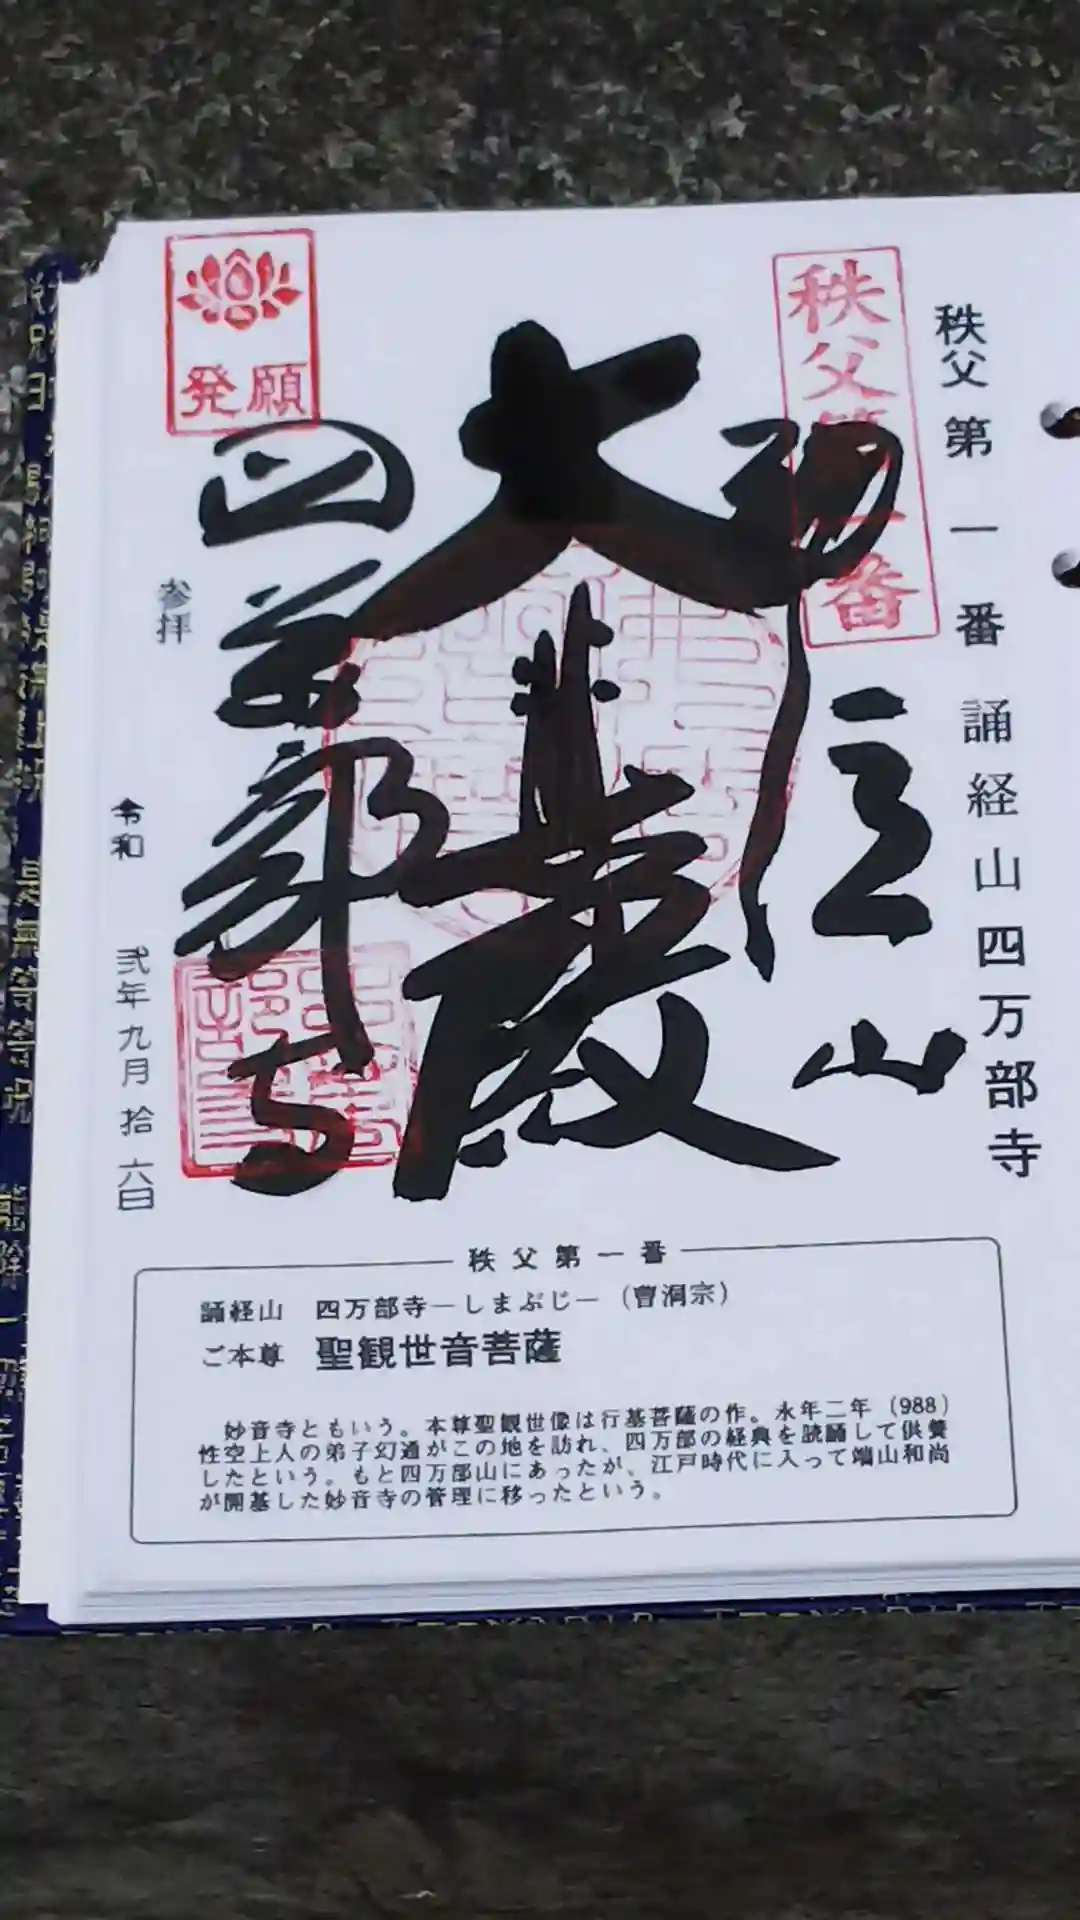 秩父第一番 誦経山四万部寺
秩父第一番
大悲殿
山
四万部寺
発願
参拝
令和 弐年九月拾六日
秩父第一番
誦経山 四万部寺―しまぶじ―（曹洞宗）
ご本尊 聖観世音菩薩
妙音寺ともいう。本尊聖観世像は行基菩薩の作。永年二年（988）
性空上人の弟子幻通がこの地を訪れ、四万部の経典を読誦して供養
したという。もと四万部山にあったが、江戸時代に入って端山和尚
が開基した妙音寺の管理に移ったという。